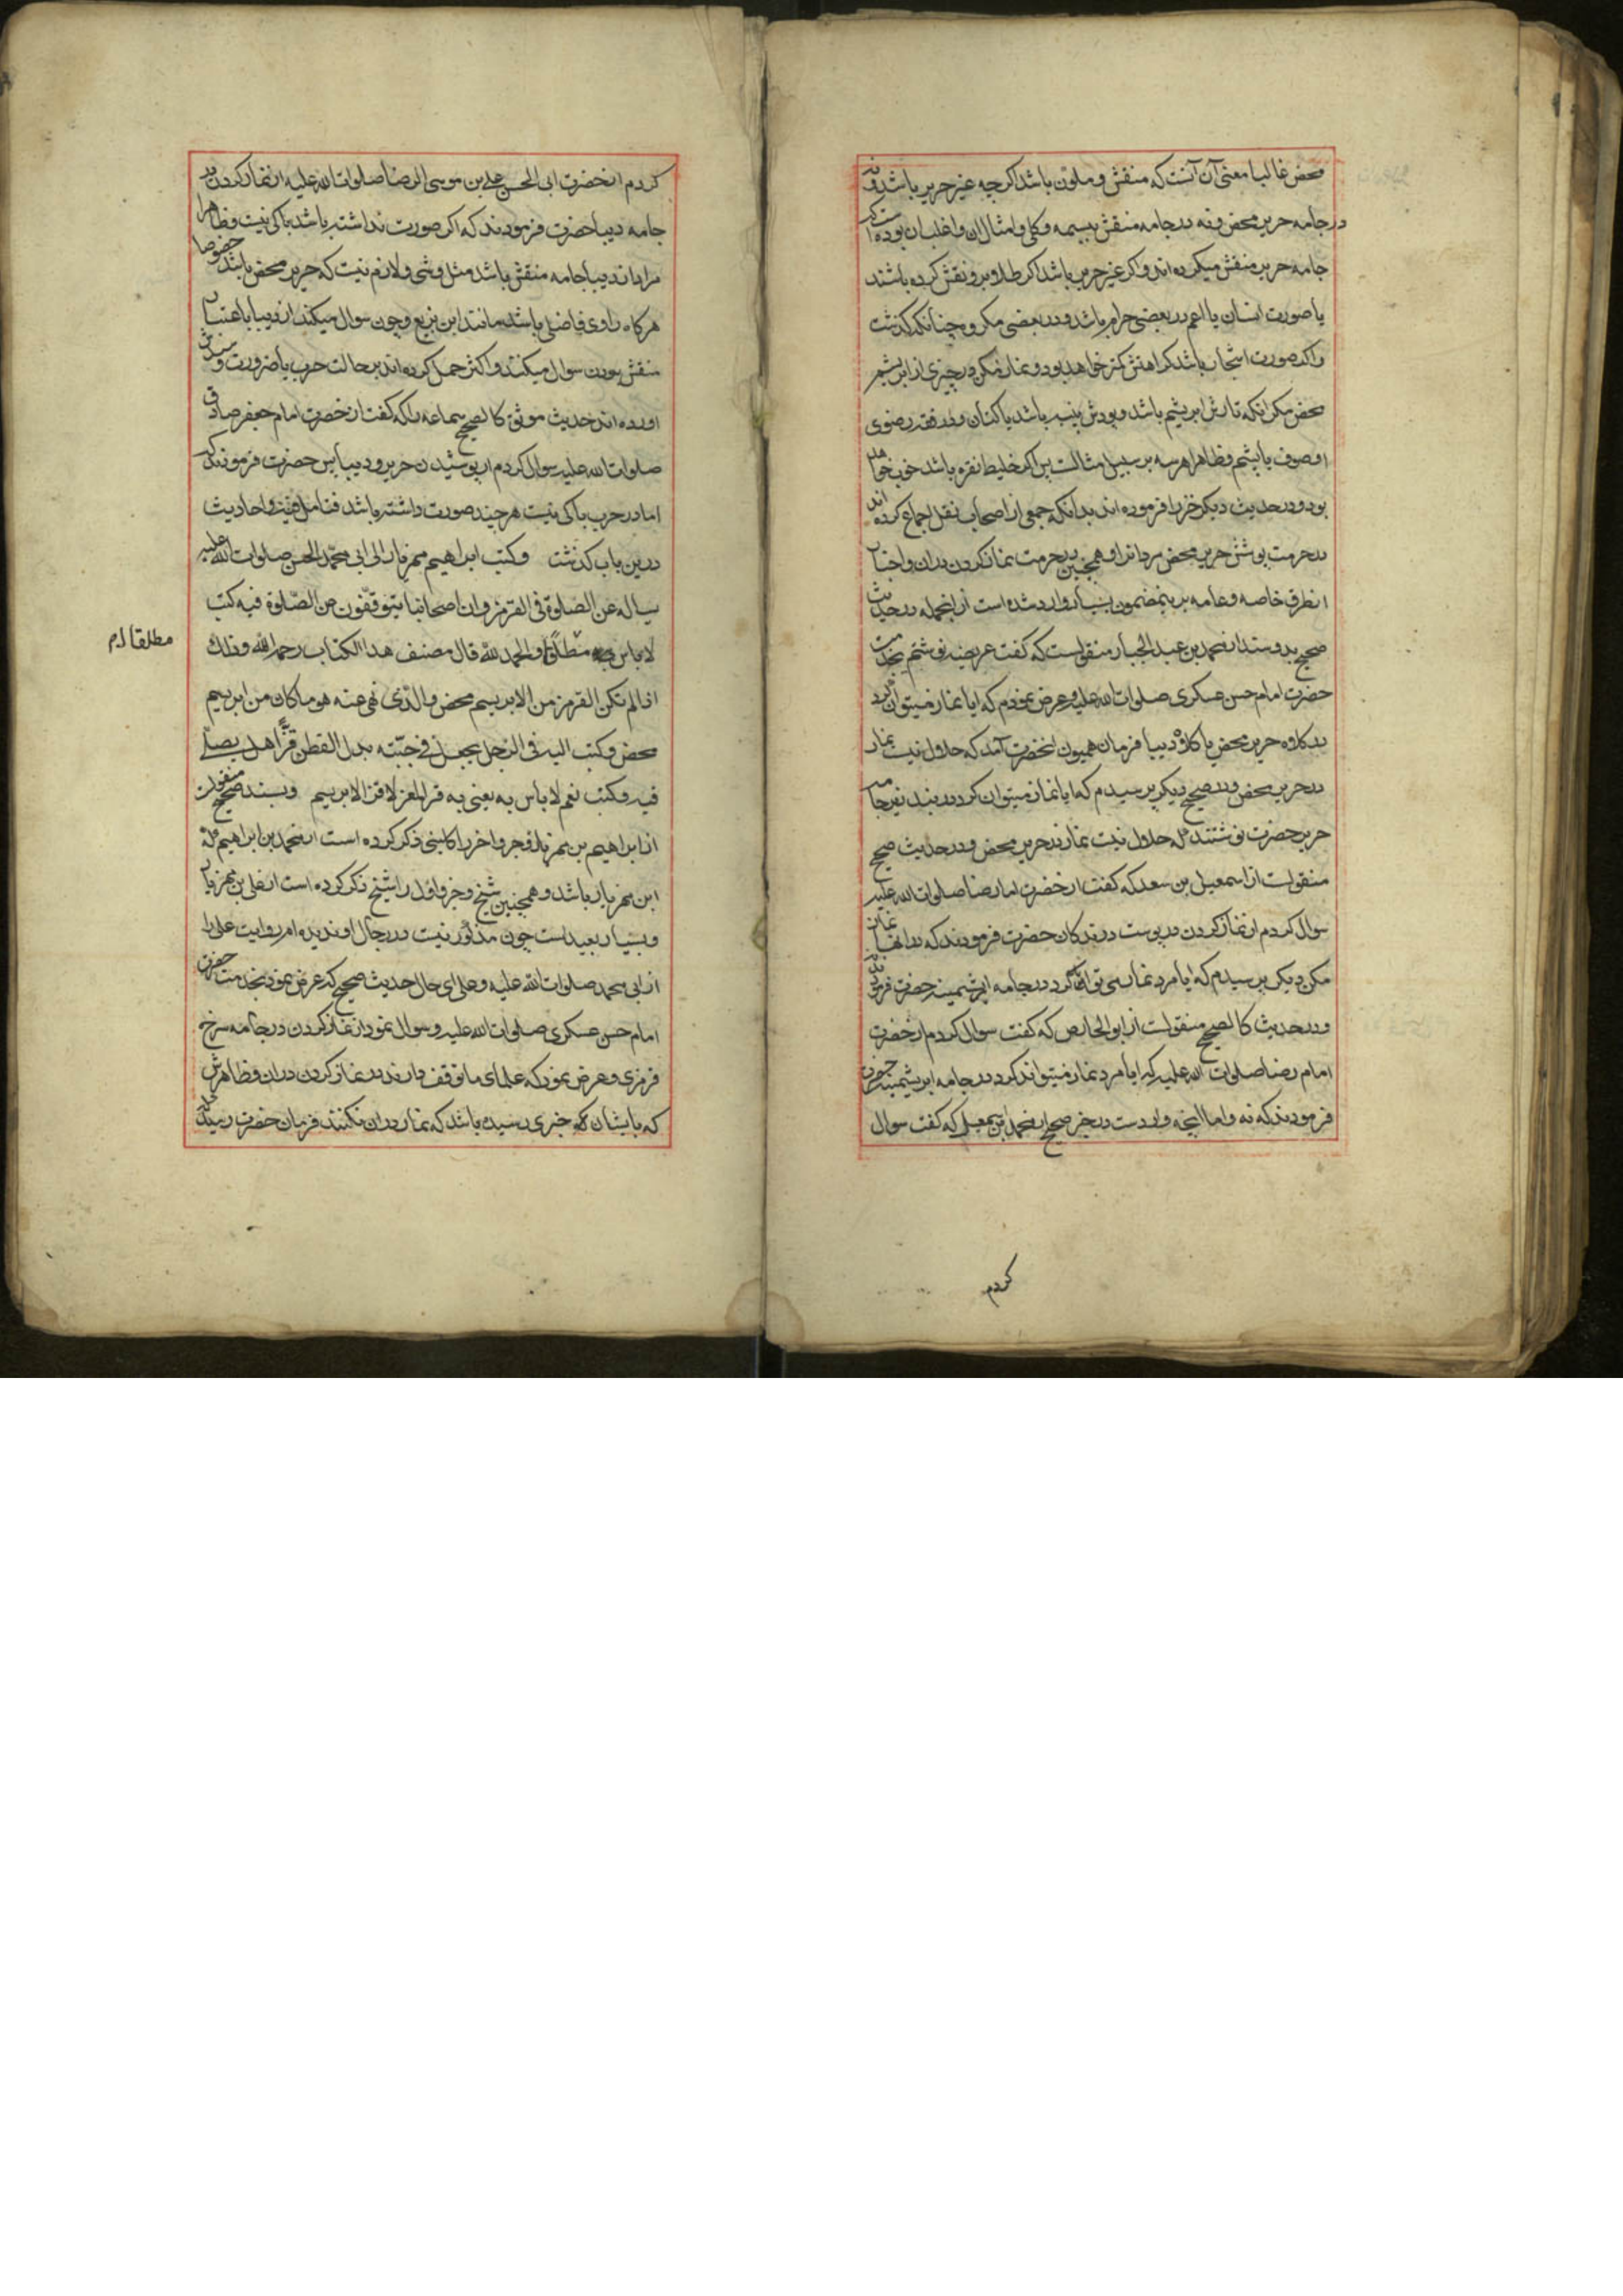 محض غالبا معنی آن آنست که منقش و ملون باشد اکرچه غیر حریر باشد و نه
در جامه حریر محض و نه در جامه منقش بیسمه و کلی و امثال ان و اغلب ان بوده است که
جامه حریر منقش میکرده اند و اکر غیر حریر باشد اکر طلا و برو نقش کرده باشند
یا صورت انسان یا اعم در بعضی حرام باشد و در بعضی مکروه چنانکه کذشت
و اکر صورت اشجار باشد کراهتش کمتر خواهد بود و نماز مکن در چیزی از ابریشم
محض مکر انکه تارش ابریشم باشد و پودش پنبه باشد یا کتان و در فقه رضوی
او صوف یا پشم و ظاهرا هر سه بر سبیل مثالست پس اکر خلیط نقره باشد خوب خواهد
بود و در حدیث دیکر خز را فرموده اند بدانکه جمعی از اصحاب نقل اجماع کرده اند
در حرمت پوشش حریر محض مردانرا و همچنین در حرمت نماز کردن در ان و اخبار
از طرق خاصه و عامه برین مضمون بسیار وارد شده است از انجمله در حدیث
صحیح بدو سند از محمد بن عبد الجبار منقولست که کفت عریضه نوشتم بخدمت
حضرت امام حسن عسکری صلوات الله علیه و عرض نمودم که ایا نماز میتوان کرد
در کلاه حریر محض یا کلاه دیبا فرمان همیون انحضرت آمد که حلال نیست نماز
در حریر محض و در صحیح دیکر پرسیدم که ایا نماز میتوان کرد در بند زیر جامه
حریر حضرت نوشتند که حلال نیست نماز در حریر محض و در حدیث صحیح
منقولست از اسمعیل بن سعد که کفت از حضرت امام رضا صلوات الله علیه
سوال کردم از نماز کردن در پوست درندکان حضرت فرمودند که در انها نماز
مکن دیکر پرسیدم که ایا مرد نماز می تواند کرد در جامه ابریشمینه حضرت فرمودند نه
و در حدیث کالصحیح منقولست از ابو الحارص که کفت سوال کردم از حضرت
امام رضا صلوات الله علیه که ایا مرد نماز میتواند کرد در جامه ابریشمینه حضرت
فرمودند که نه و اما انچه واردست در خبر صحیح از محمد بن اسمعیل که کفت سوال
کردم
کردم از حضرت ابی الحسن علی بن موسی الرضا صلوات الله علیه از نماز کردن در
جامه دیبا حضرت فرمودند که اکر صورت نداشته باشد باکی نیست و ظاهرا
مراد از دیبا جامه منقش باشد مثل وشی و لازم نیست که حریر محض باشد خصوصا
هرکاه راوی فاضلی باشد مانند ابن بزیع و چون سوال میکند از دیبا باعتبار
منقش بودن سوال میکنند و اکثر حمل کرده اند بر حالت حرب یا ضرورت و
اورده اند حدیث موثق کالصحیح سماعه را که کفت از حضرت امام جعفر صادق
صلوات الله علیه سوال کردم از پوشیدن حریر و دیبا پس حضرت فرمودند که
اما در حرب باکی نیست هر چند صورت داشته باشد فتامل فیه و احادیث
درین باب کذشت و کتب ابراهیم مهزیار الی ابی محمد الحسن صلوات الله علیه
یساله عن الصلوة فی القرمز و ان اصحابنا یتوقفون عن الصلوة فیه کتب
لا باس به مطلقا و الحمد لله قال مصنف هذا الکتاب رحمه الله و ذلك
مطلقا لم
اذا لم تکن القرمز من الابریسم محض و الذی نهی عنه هو ما کان من ابریسم
محض و کتب الیه فی الرجل یجعل فی جبته بدل القطن قزا هل یصلی
فیه و کتب نعم لا باس به یعنی به قز المعز لا قز الابریسم و بسند صحیح منقولست
از ابراهیم بن مهزیار و جزو اخر را کلینی ذکر کرده است از محمد بن ابراهیم که
ابن مهزیار باشد و همچنین شیخ و جزو اول را شیخ ذکر کرده است از علی بن مهزیار
و بسیار بعید است چون مذکور نیست در رجال او ندیده ام روایت علی را
از ابی محمد صلوات الله علیه و علی ای حال حدیث صحیح که عرض نمود بخدمت حضرت
امام حسن عسکری صلوات الله علیه و سوال نمود از نماز کردن در جامه سرخ
قرمزی و عرض نمود که علمای ما توقف دارند در نماز کردن در ان و ظاهرش
که بایشان خبری رسیده باشد که نماز در ان نکنند فرمان حضرت رسید که